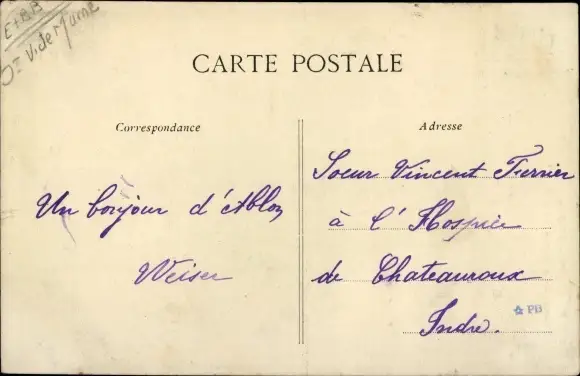 E + BB
V. de Marne
CARTE POSTALE
Correspondance
Adresse
Un bonjour d'Ablon
Weiser
Soeur Vincent Ferrier
à l'Hospice
de Chateauroux
Indre.
PB